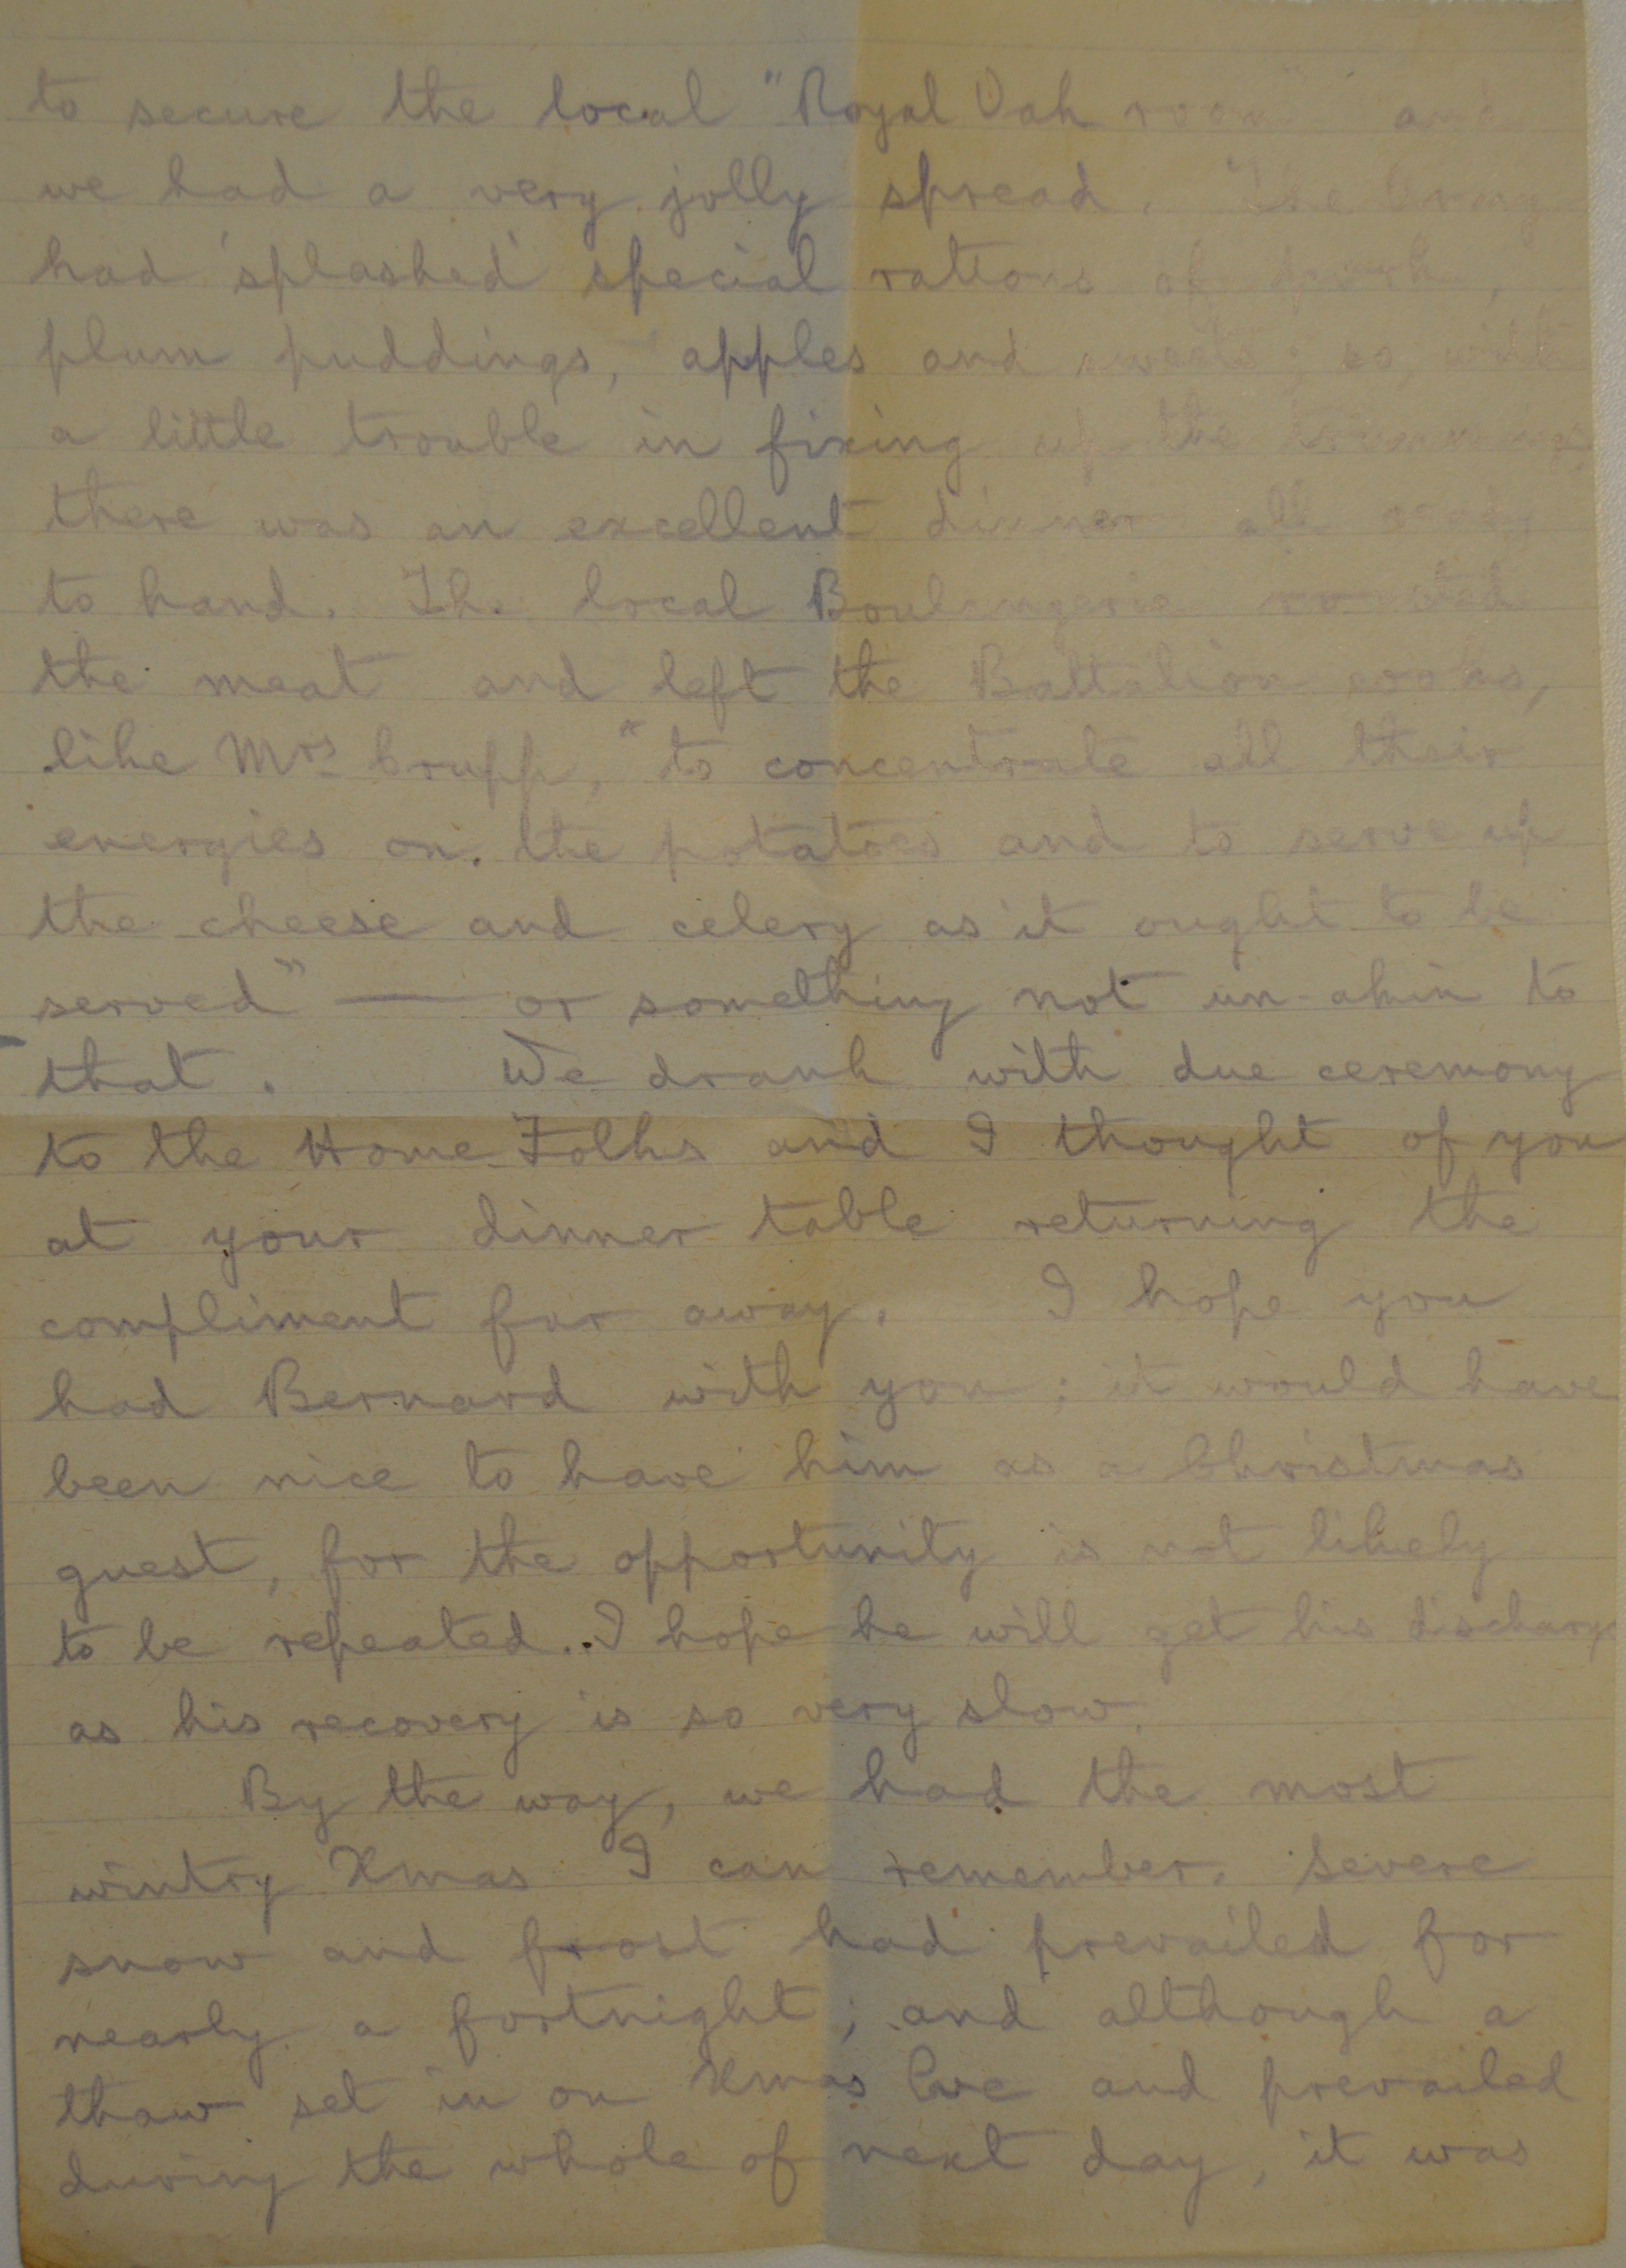 to secure the local "Royal Oak room" and
we had a very jolly spread. The Army
had 'splashed' special rations of pork,
plum puddings, apples and sweets; so, with
a little trouble in fixing up the trimmings
there was an excellent dinner all ready
to hand. The local Boulangerie roasted
the meat and left the Battalion cooks,
like Mrs Crupp, "to concentrate all their
energies on the potatoes and to serve up
the cheese and celery as it ought to be
served" — or something not un-akin to
that. We drank with due ceremony
to the Home-Folks and I thought of you
at your dinner table returning the
compliment far away. I hope you
had Bernard with you; it would have
been nice to have him as a Christmas
guest, for the opportunity is not likely
to be repeated. I hope he will get his discharge
as his recovery is so very slow.
By the way, we had the most
wintry Xmas I can remember. Severe
snow and frost had prevailed for
nearly a fortnight; and although a
thaw set in on Xmas Eve and prevailed
during the whole of next day, it was